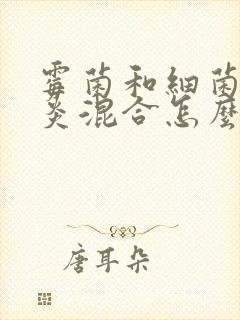 霉菌和细菌
炎混合怎麽
唐耳朵